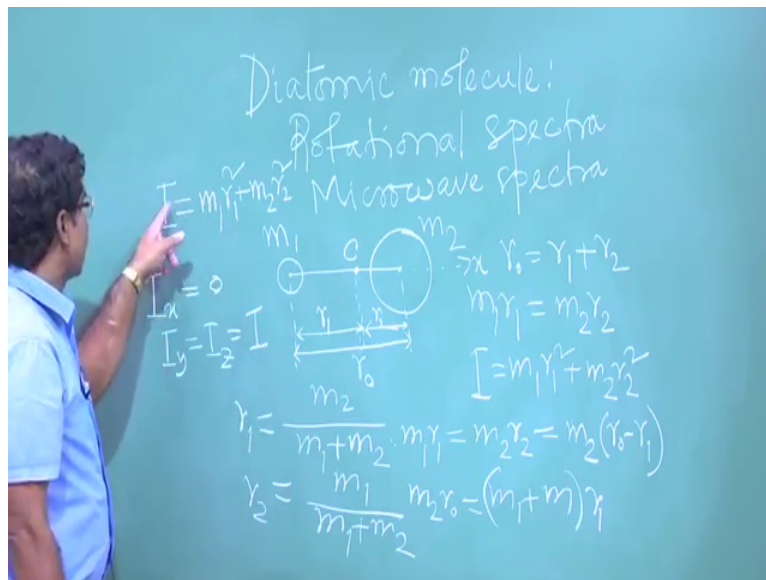 Diatomic molecule:
Rotational spectra
Microwave spectra
I = m₁r₁² + m₂r₂²
m₁ C m₂
→x
r₀ = r₁ + r₂
Iₓ = 0
m₁r₁ = m₂r₂
I_y = I_z = I
r₁ r
r₀
I = m₁r₁² + m₂r₂²
r₁ = m₂/(m₁+m₂) · m₁r₁ = m₂r₂ = m₂(r₀-r₁)
r₂ = m₁/(m₁+m₂) m₂r₀ = (m₁+m)r₁